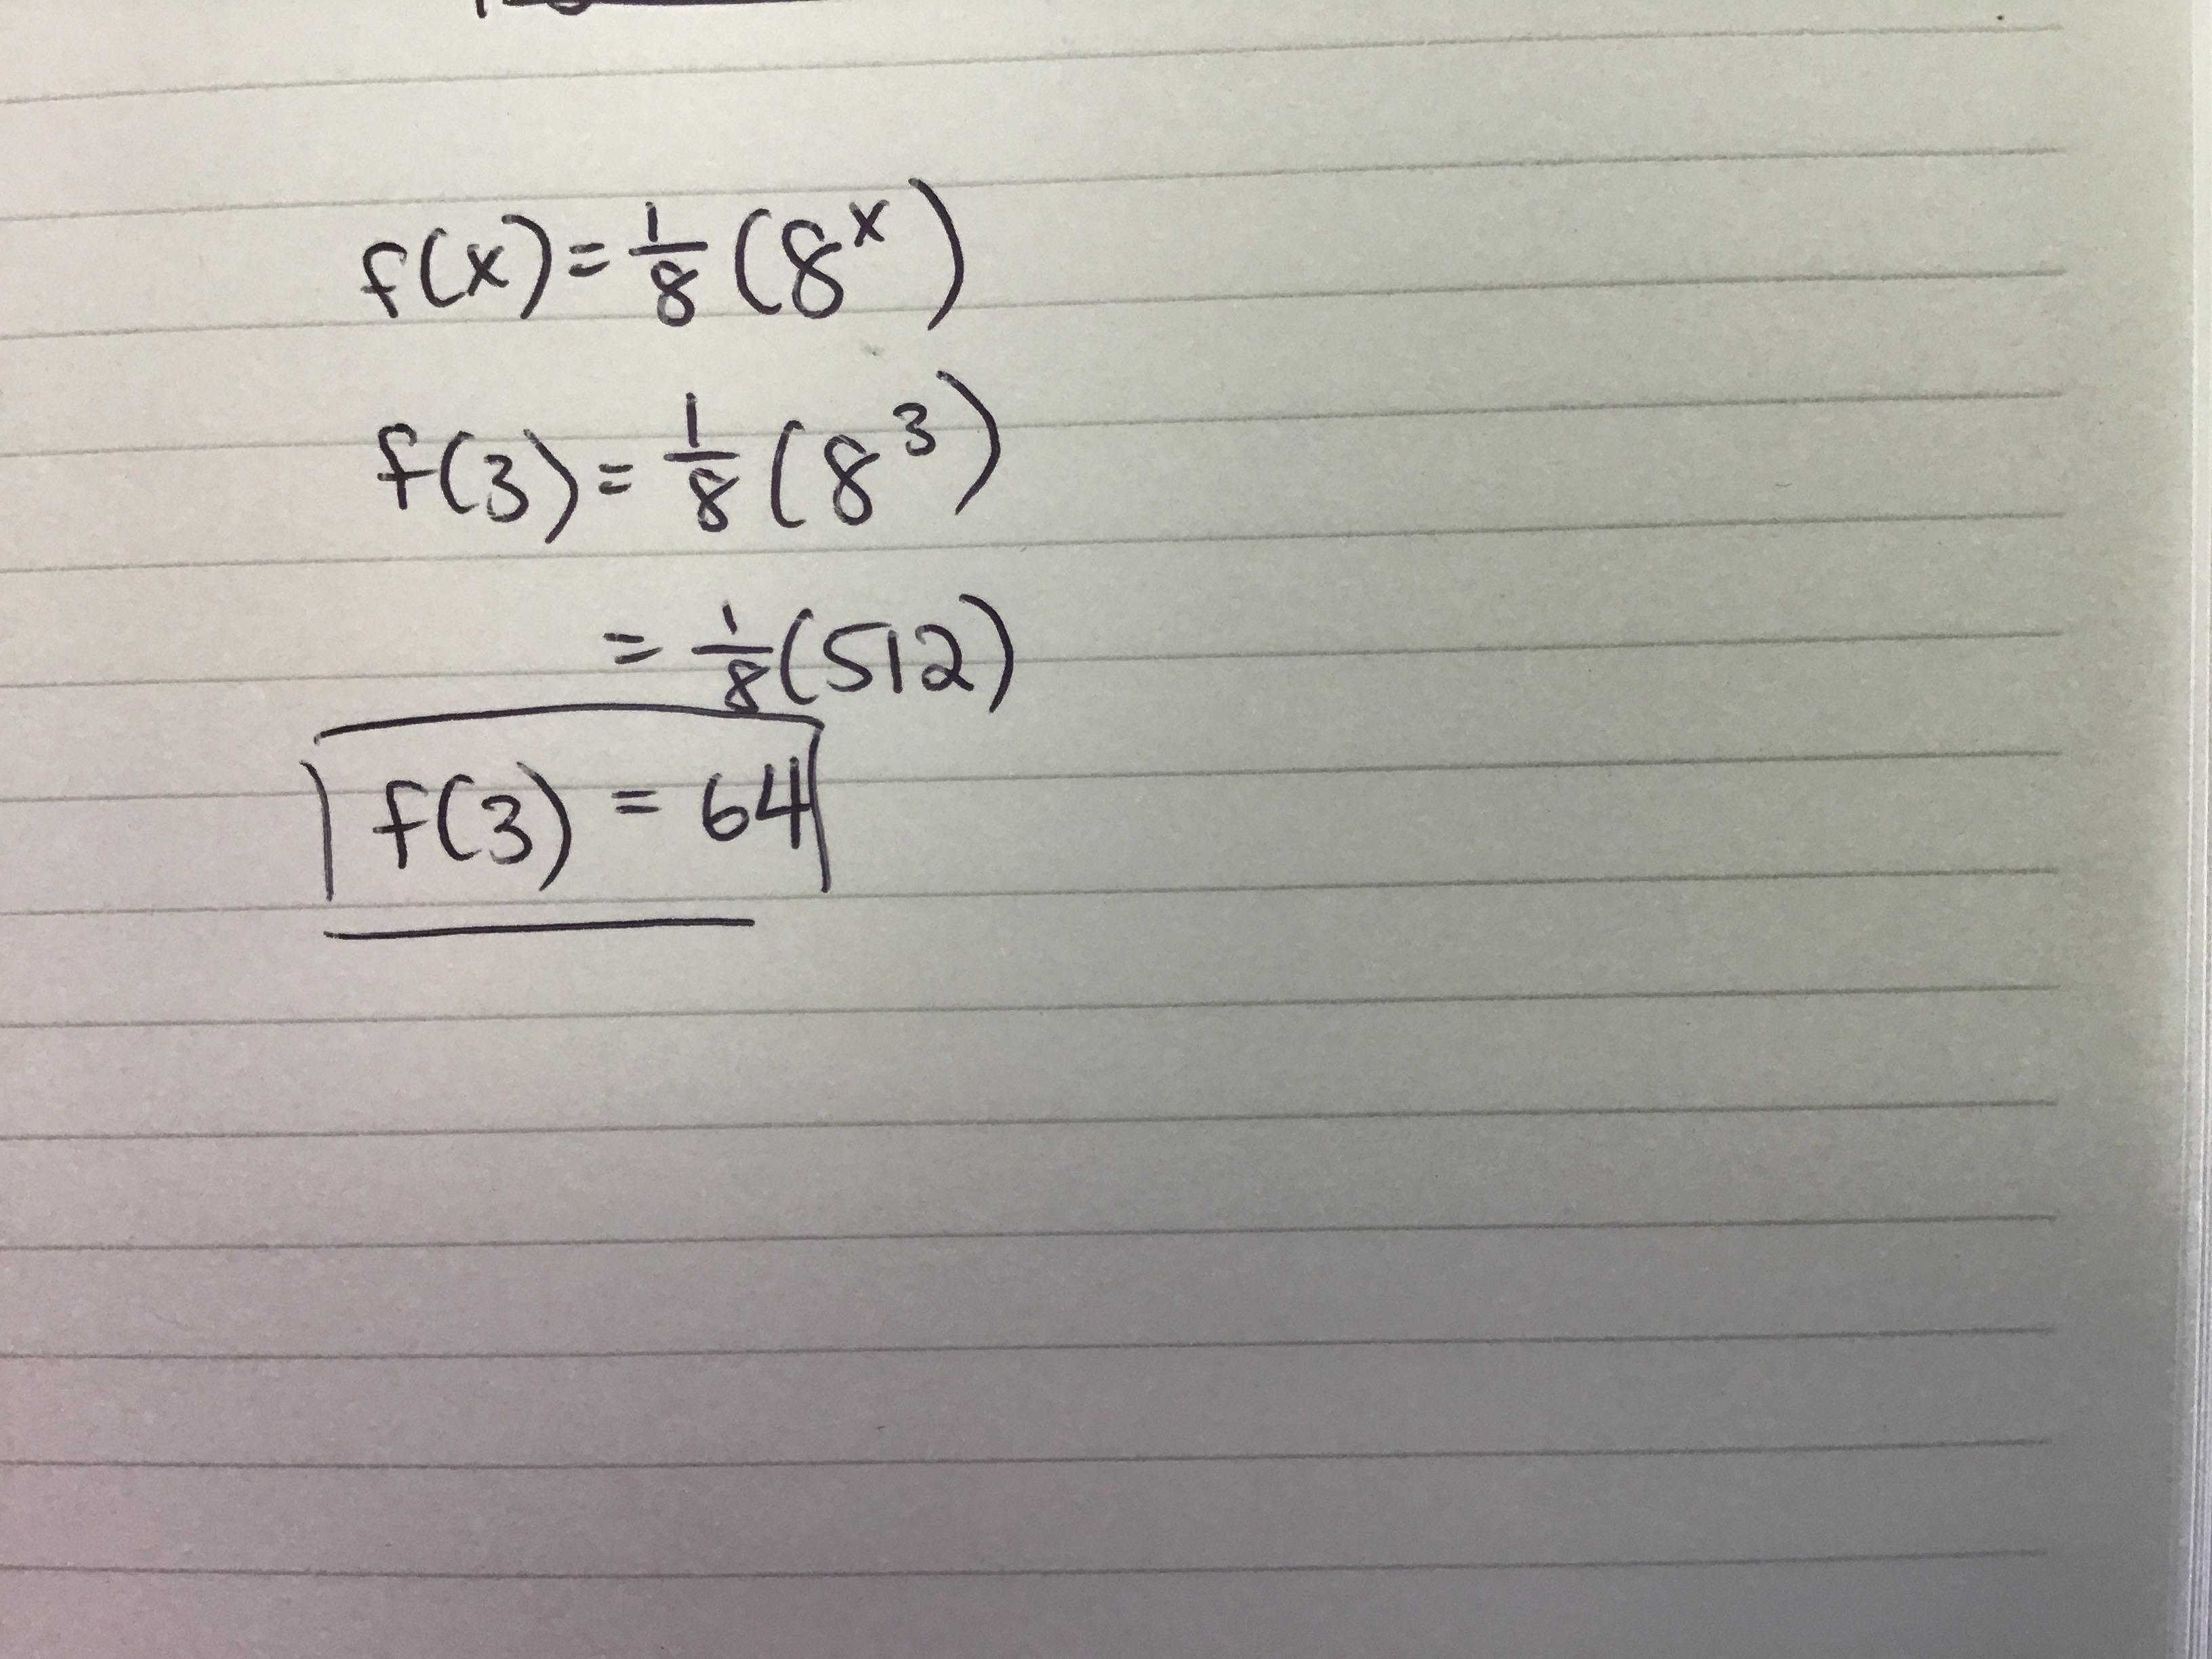 f(x) = 1/8 (8^x)
f(3) = 1/8 (8^3)
= 1/8 (512)
f(3) = 64